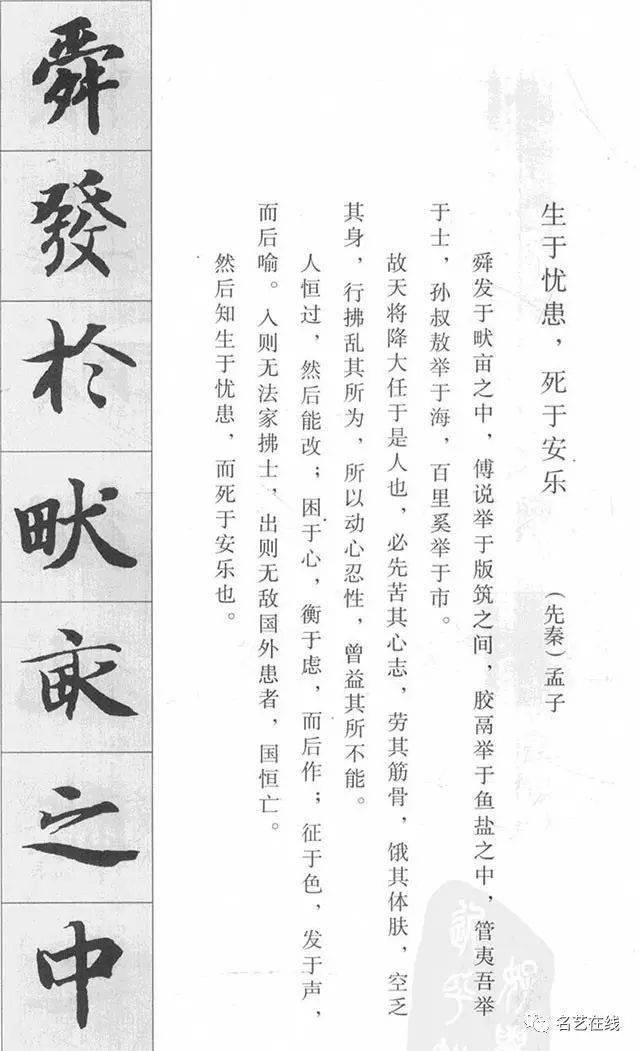 生于忧患，死于安乐 (先秦)孟子
舜发于畎亩之中，傅说举于版筑之间，胶鬲举于鱼盐之中，管夷吾举
于士，孙叔敖举于海，百里奚举于市。
故天将降大任于是人也，必先苦其心志，劳其筋骨，饿其体肤，空乏
其身，行拂乱其所为，所以动心忍性，曾益其所不能。
人恒过，然后能改；困于心，衡于虑，而后作；征于色，发于声，
而后喻。入则无法家拂士，出则无敌国外患者，国恒亡。
然后知生于忧患，而死于安乐也。
舜發於畎畝之中
名艺在线